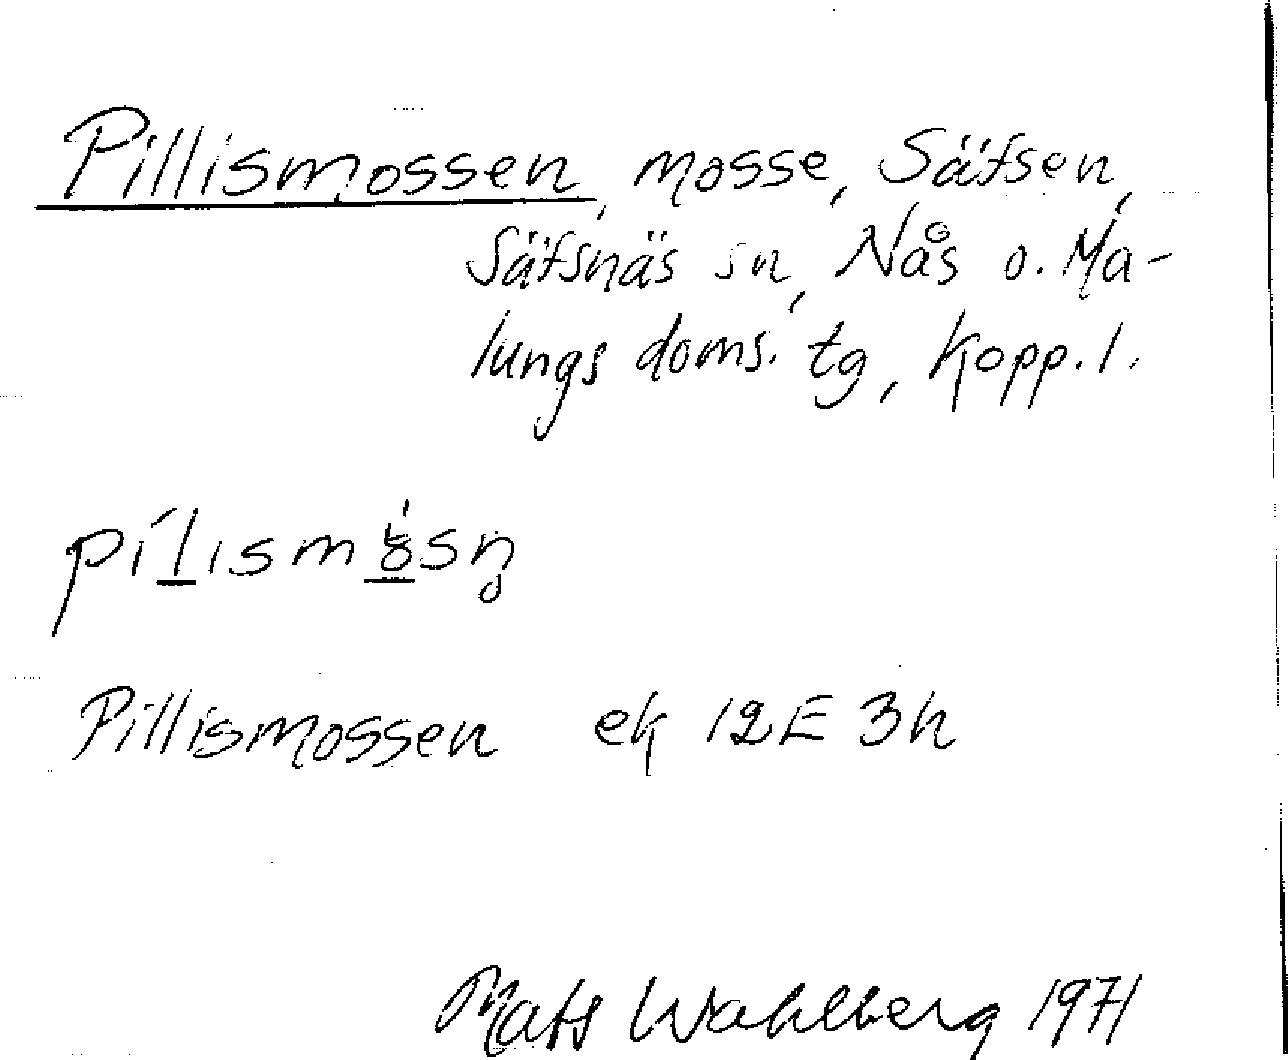 Pillismossen, mosse, Säfsen,
Säfsnäs sn, Nås o. Ma-
lungs doms. tg, Kopp. l.
Pillismossen ek 12E 3h
Mats Wahlberg 1971